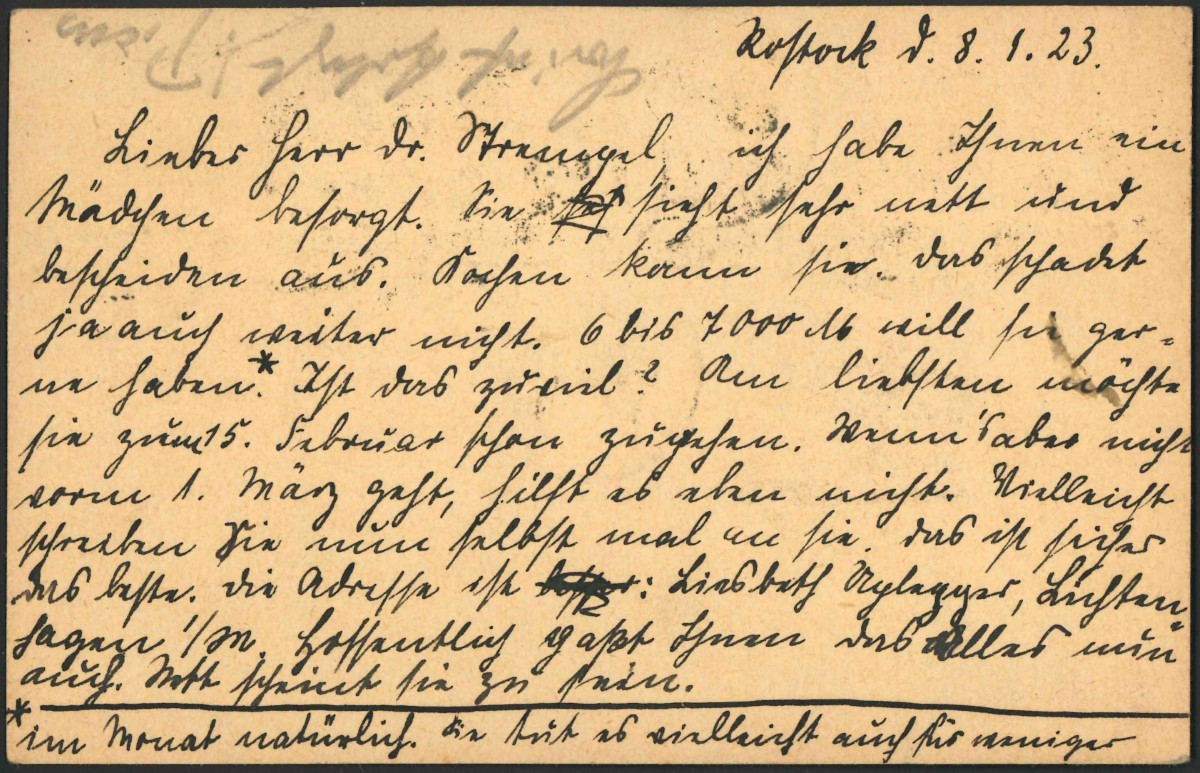 Rostock d. 8. 1. 23.
Liebes Herr Dr. Strempel, ich habe Ihnen ein
Mädchen besorgt. Sie sieht sehr nett und
bescheiden aus. Kochen kann sie. das schadet
ja auch weiter nicht. 6 bis 7000 M will sie ger-
ne haben.* Ist das zuviel? Am liebsten möchte
sie zum 15. Februar schon zugehen. Wenn's aber nicht
vorm 1. März geht, hilft es eben nicht. Vielleicht
schreiben Sie nun selbst mal an sie. das ist sicher
das beste. die Adresse ist: Liesbeth Uplegger, Lichten
hagen i/M. Hoffentlich paßt Ihnen das Alles nun
auch. Nett scheint sie zu sein.
* im Monat natürlich. Sie tut es vielleicht auch für weniger